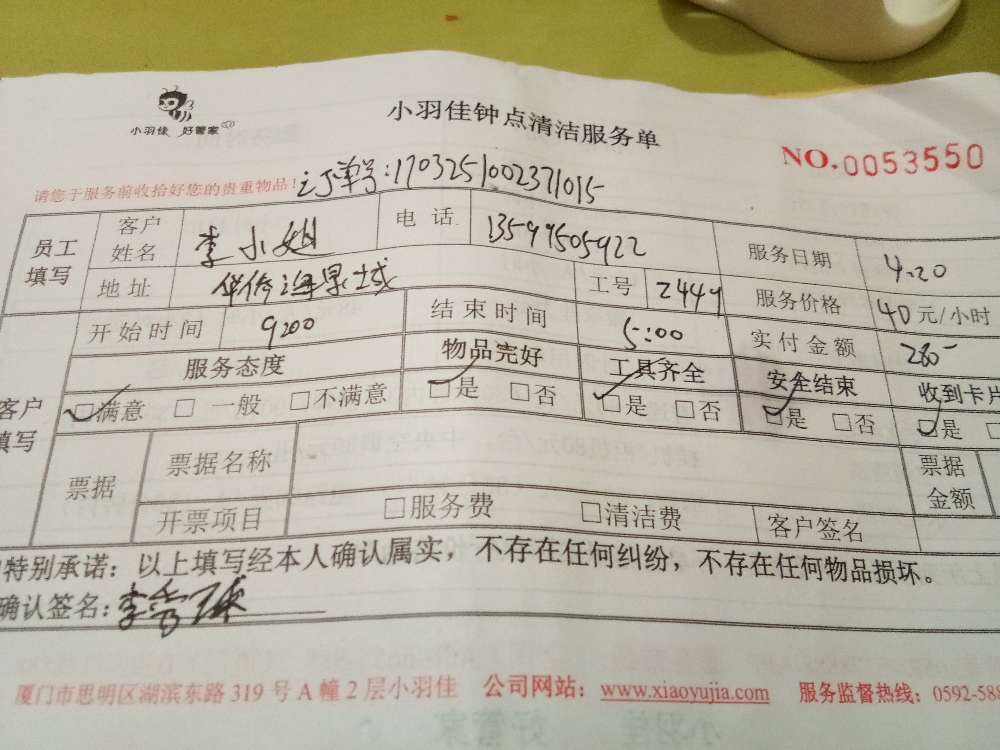 小羽佳 好管家
小羽佳钟点清洁服务单
NO.0053550
请您于服务前收拾好您的贵重物品!
订单号:1703251002371015
员工填写
客户姓名 李小姐 电话 13599505922 服务日期 4.20
地址 华侨海景城 工号 2449 服务价格 40元/小时
开始时间 9:00 结束时间 5:00 实付金额 280-
客户填写
服务态度 物品完好 工具齐全 安全结束 收到卡片
□满意 □一般 □不满意 □是 □否 □是 □否 □是 □否 □是
票据 票据名称 票据金额
开票项目 □服务费 □清洁费 客户签名
特别承诺:以上填写经本人确认属实,不存在任何纠纷,不存在任何物品损坏。
确认签名:李
厦门市思明区湖滨东路319号A幢2层小羽佳 公司网站:www.xiaoyujia.com 服务监督热线:0592-588